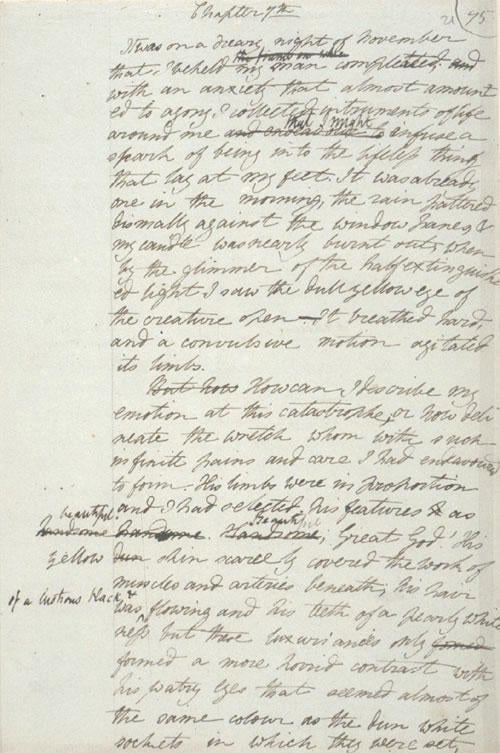 Chapter 7th
21 95
It was on a dreary night of November
the frame on whic
that I beheld my man compleated; and
with an anxiety that almost amount
ed to agony I collected instruments of life
that I might
around me and endeavour to infuse a
spark of being into the lifeless thing
that lay at my feet. It was already
one in the morning, the rain pattered
dismally against the window panes, &
my candle was nearly burnt out, when
by the glimmer of the half extinguish
ed light I saw the dull yellow eye of
the creature open. It breathed hard,
and a convulsive motion agitated
its limbs.
But how How can I describe my
emotion at this catastrophe; or how deli
neate the wretch whom with such
infinite pains and care I had endeavoured
to form. His limbs were in proportion
and I had selected his features as
beautiful
handsome handsome. Handsome, Great God! His
Beautiful
yellow dun skin scarcely covered the work of
muscles and arteries beneath; his hair
of a lustrous black, &
was flowing and his teeth of a pearly white
ness but these luxuriances only formed
formed a more horrid contrast with
his watry eyes that seemed almost of
the same colour as the dun white
sockets in which they were set